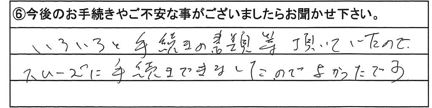 ⑥今後のお手続きやご不安な事がございましたらお聞かせ下さい。
いろいろと手続きの書類等頂いていたので
スムーズに手続きできましたのでよかったです